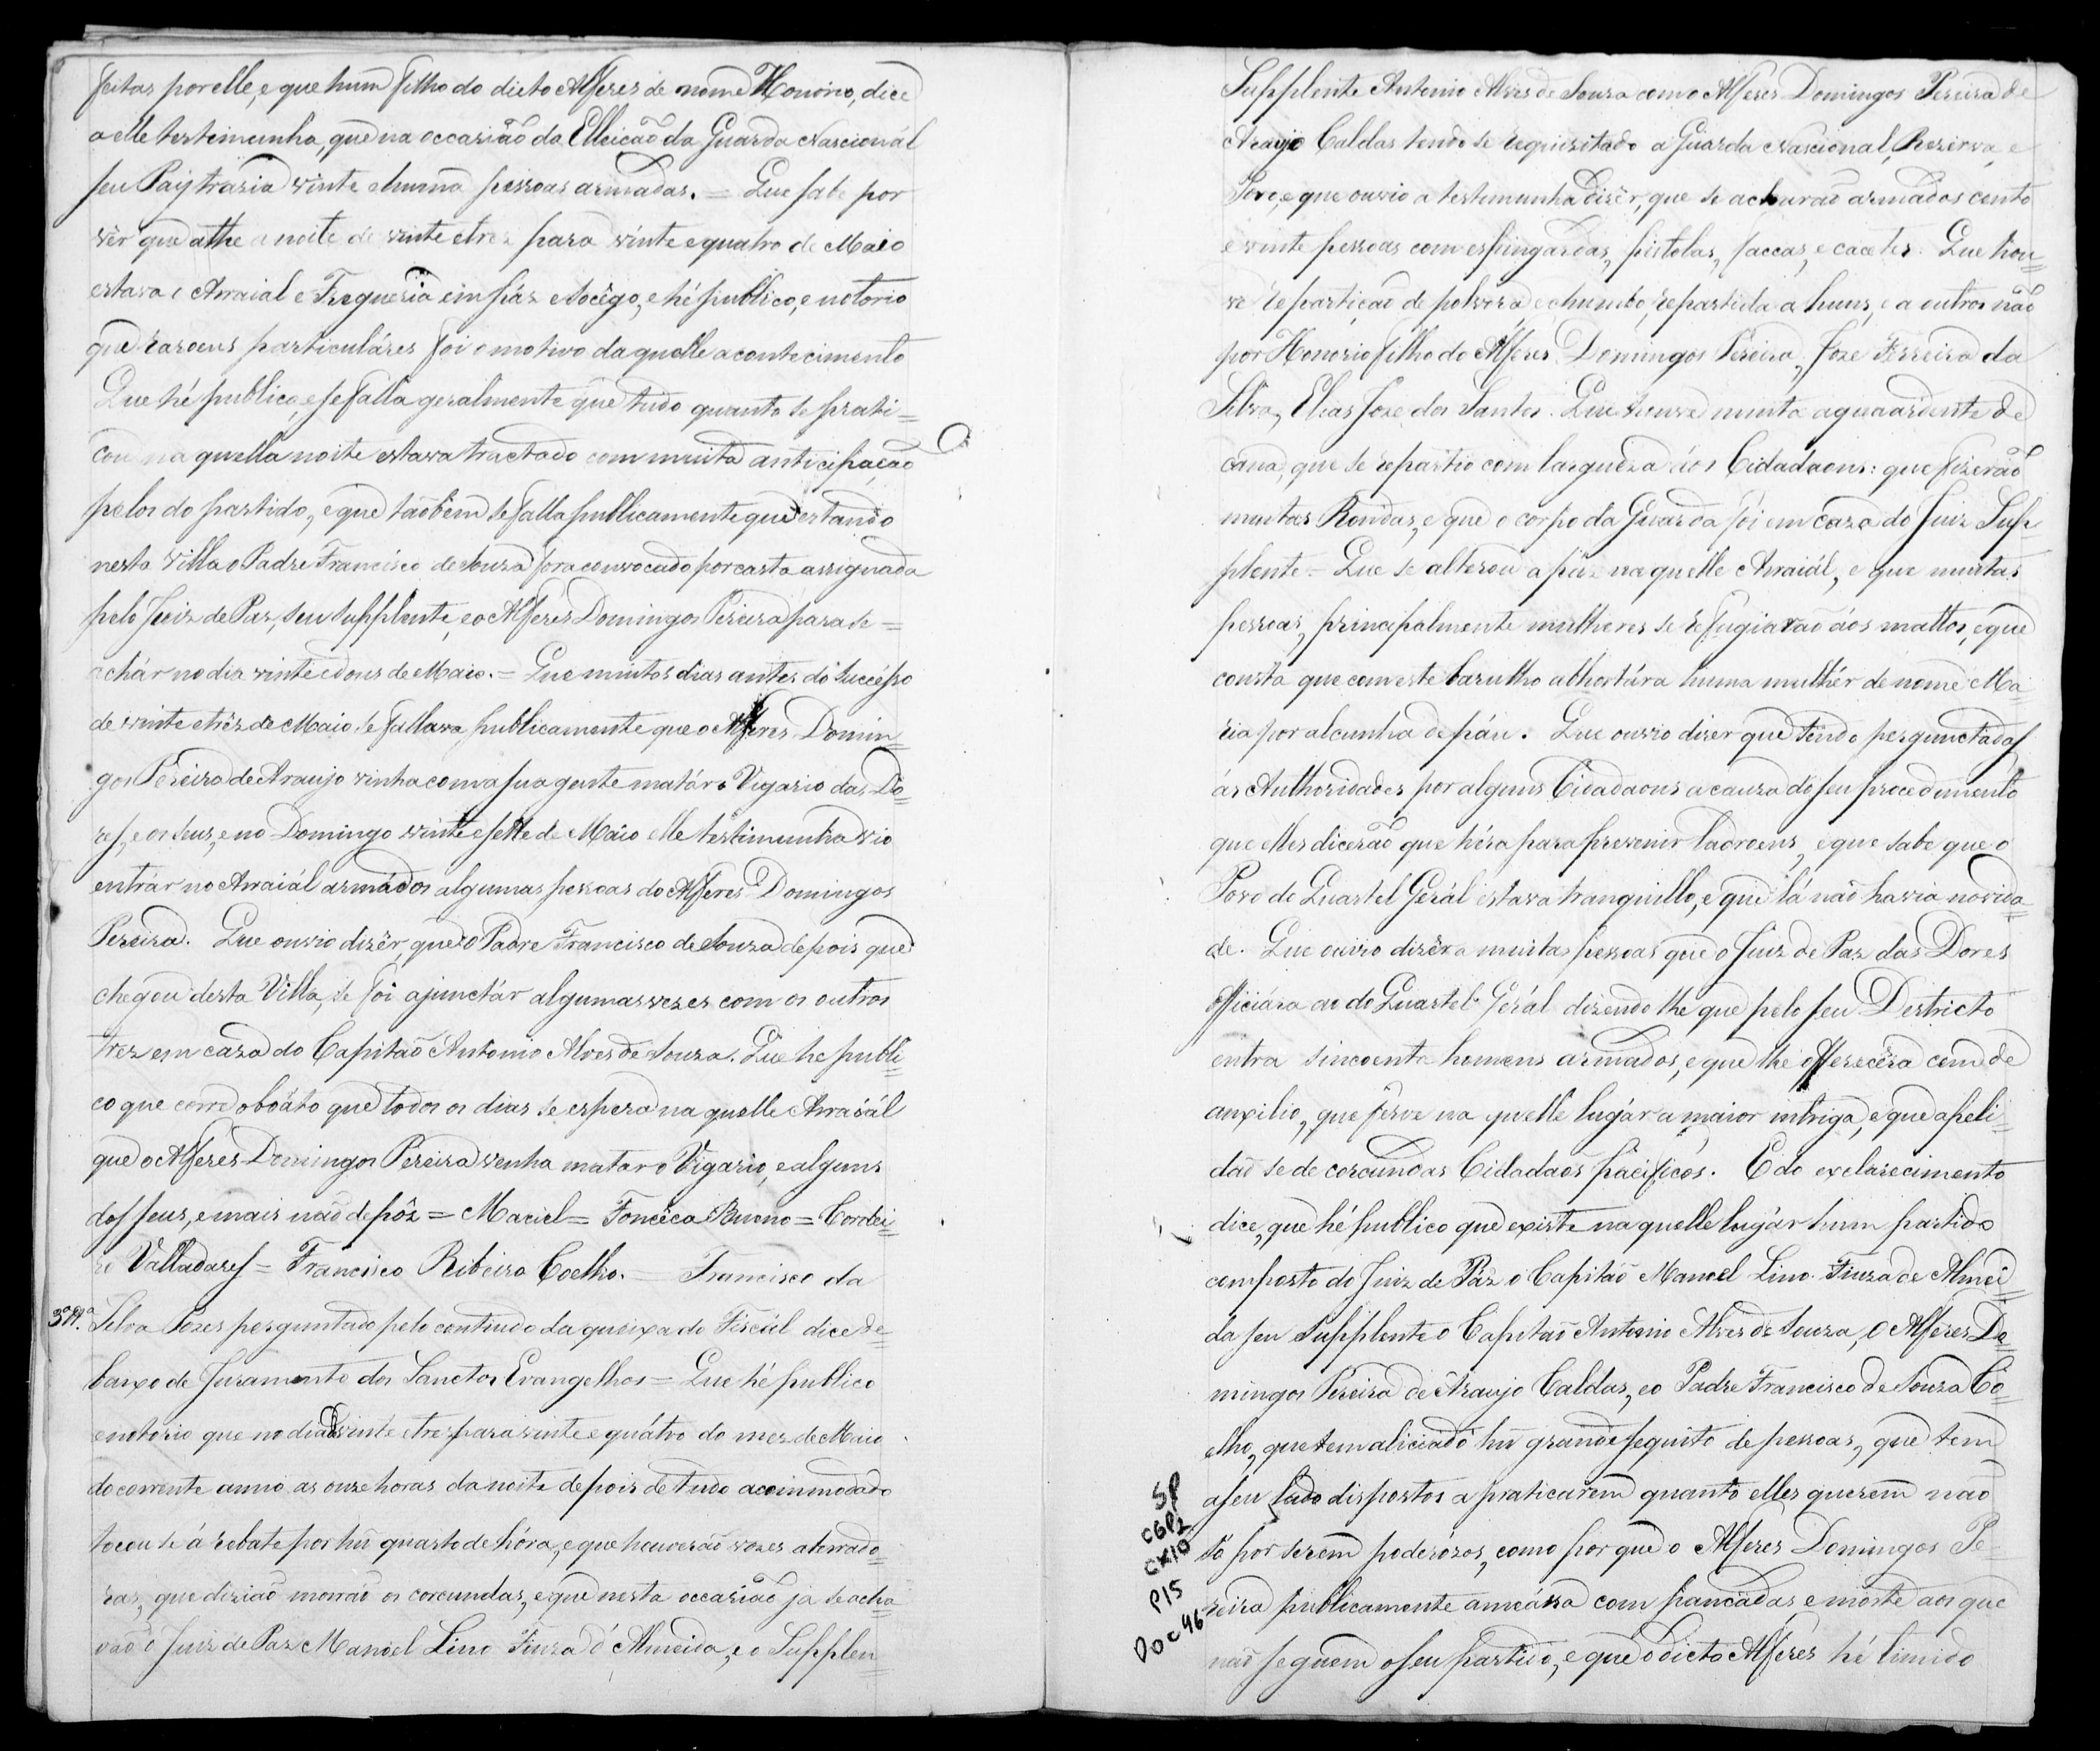 feitas por elle, e que hum filho do dicto Alferes de nome Honorio, dice
a elle testemunha, que na occasião da Elleição da Guarda Nascionál
seu Pay trazia vinte e huma pessoas armadas. = Que sabe por
vêr que athe a noite de vinte e trez para vinte e quatro de Maio
estava o Arraial e Freguesia em páz e socêgo, e hé publico, e notorio
que rasoens particuláres foi o motivo daquelle acontecimento
Que hé publico, e se falla geralmente que tudo quanto se prati=
cou na quella noite estava tractado com muita anticipação
pelos do partido, e que tãobem se falla publicamente que estando
nesta Villa o Padre Francisco de Souza fora convocado por carta assignada
pelo Juiz de Paz, seu supplente, e o Alferes Domingos Pereira para se =
achár no dia vinte e dous de Maio. = Que muitos dias antes do Succésso
de vinte e trêz de Maio se fallava publicamente que o Alferes Domin=
gos Pereira de Araujo vinha com a sua gente matár o Vigario das Do=
res, e os seus, e no Domingo vinte e sette de Maio elle testimunha vio
entrár no Arraiál armádos algumas pessoas do Alferes Domingos
Pereira. Que ouvio dizêr, que o Padre Francisco de Souza depois que
chegou desta Villa, se foi ajunctár algumas vezes com os outros
trez em caza do Capitaõ Antonio Alves de Souza. Que he publi=
co que corre o boáto que todos os dias se espera na quelle Arraiál
que o Alferes Domingos Pereira venha matar o Vigario, e alguns
dos seus, e mais naõ depôz = Maciel = Fonceca Bueno = Cordei=
ro Valladares = Francisco Ribeiro Coelho. = Francisco da
3ª Tª. Silva Pozes perguntado pelo contiudo da queixa do Fiscál dice de=
baixo de Juramento dos Sanctos Evangelhos = Que hé publico
e notorio que no dia vinte e tres para vinte e quátro do mez de Maio
do corrente anno as onze horas da noite depois de tudo acommodado
tocou se á rebate por hũ quarto de hóra, e que houveraõ vozes aterrado=
ras, que diziaõ morraõ os corcundas, e que nesta occasiaõ ja se acha=
vaõ o Juiz de Paz Manoel Lino Fiuza d'Almeida, e o Supplen=
Supplente Antonio Alves de Souza com o Alferes Domingos Pereira de
Araujo Caldas tendo se requizitado a Guarda Nascional, Rezerva, e
Povo, e que ouvio a testemunha dizêr, que se acharaõ armados cento
e vinte pessoas com espingardas, pistolas, faccas, e cacetes. Que hou=
ve repartiçaõ de polvora e chumbo, repartida a huns, e a outros naõ
por Honorio filho do Alferes Domingos Pereira, Joze Ferreira da
Silva, Elias Joze dos Santos. Que houve muita aguaardente de
cana, que se repartio com largueza áos Cidadaons: que fizeraõ
muitas Rondas, e que o corpo da Guarda foi em caza do Juiz Sup=
plente = Que se alterou a páz na quelle Arraiál, e que muitas
pessoas, principalmente mulheres se refugiaraõ áos mattos, e que
consta que com este barulho abhortára huma mulhér de nome Ma=
ria por alcunha de páu. Que ouvio dizer que tendo pergunctado
ás Authoridades por alguns Cidadaons a cauza do seu procedimento
que elles diceraõ que héra para prevenir ladroens, e que sabe que o
Povo do Quartel Gerál estava tranquillo, e que lá naõ havia novida=
de. Que ouvio dizêr a muitas pessoas que o Juiz de Paz das Dores
officiára ao do Quartel Gerál dizendo lhe que pelo seu Destricto
entra sincoenta homens armados, e que lhe offerecêra cem de
auxilio, que ferve na quelle lugár a maior intriga, e que apeli=
daõ se de corcundas Cidadaõs pácificos. E do exclarecimento
dice, que hé publico que existe na quelle lugár hum partido
composto do Juiz de Páz o Capitaõ Manoel Lino Fiuza de Almei=
da seu Supplente o Capitaõ Antonio Alves de Souza, o Alferes Do=
mingos Pereira de Araujo Caldas, e o Padre Francisco de Souza Co=
elho, que tem aliciádo hũ grande sequito de pessoas, que tem
a seu lado dispostos a praticarem quanto elles querem naõ
só por serem poderózos, como por que o Alferes Domingos Pe=
reira publicamente ameássa com pancádas e mórte aos que
naõ seguem o seu partido, e que o dicto Alferes hé timido
SP
CGP2
CX10
P15
DOC 46